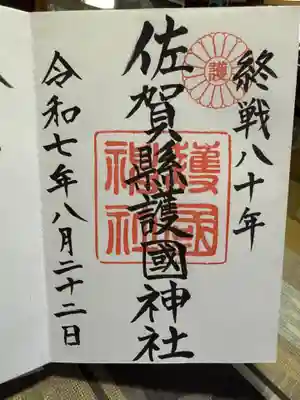 終戦八十年
護
佐賀縣護國神社
護國
神社
令和七年八月二十二日